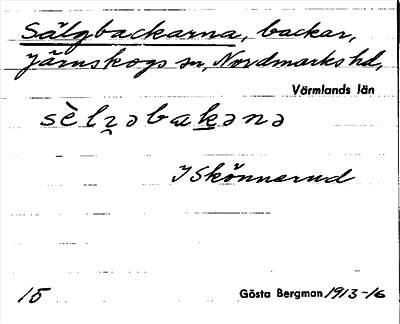 Sälgbackarna, backar,
Järnskogs sn, Nordmarks hd,
Värmlands län
sèlʒəbakənə
I Skönnerud
15 Gösta Bergman 1913-16